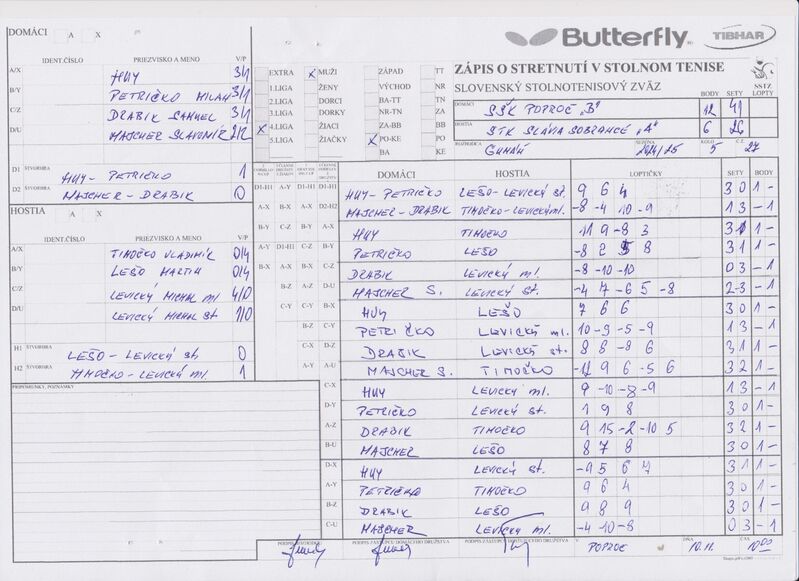 DOMÁCI A X
Butterfly TIBHAR
IDENT.ČÍSLO PRIEZVISKO A MENO V/P
A/X HUY 3/1
B/Y PETRIČKO MILAN 3/1
C/Z DRABIK SAMUEL 3/1
D/U MAJCHER SLAVOMÍR 2/2
D1 ŠTVORHRA HUY - PETRIČKO 1
D2 MAJCHER - DRABIK 0
HOSTIA A X
IDENT.ČÍSLO PRIEZVISKO A MENO V/P
A/X TIMOČKO VLADIMÍR 0/4
B/Y LEŠO MARTIN 0/4
C/Z LEVICKÝ MICHAL ml. 4/0
D/U LEVICKÝ MICHAL st. 1/0
H1 ŠTVORHRA LEŠO - LEVICKÝ st. 0
H2 TIMOČKO - LEVICKÝ ml. 1
PRIPOMIENKY, POZNÁMKY
EXTRA X MUŽI ZÁPAD TT
1.LIGA ŽENY VÝCHOD NR
2.LIGA DORCI BA-TT TN
3.LIGA DORKY NR-TN ZA
X 4.LIGA ŽIACI ZA-BB BB
5.LIGA ŽIAČKY X PO-KE PO
BA KE
ZÁPIS O STRETNUTÍ V STOLNOM TENISE
SLOVENSKÝ STOLNOTENISOVÝ ZVÄZ
SSTZ
BODY SETY LOPTY
DOMÁCI SŠK POPROČ "B" 12 41
HOSTIA STK SLÁVIA SOBRANCE "A" 6 26
ROZHODCA SEZÓNA 2024/25 KOLO 5 Č.Z. 27
DOMÁCI HOSTIA LOPTIČKY SETY BODY
D1-H1 A-Y D1-H1 D1-H1 HUY - PETRIČKO LEŠO - LEVICKÝ st. 9 6 4 3 0 1 -
A-X B-X A-X D2-H2 MAJCHER - DRABIK TIMOČKO - LEVICKÝ ml. -8 -4 10 -9 1 3 - 1
B-Y C-Z B-Y A-X HUY TIMOČKO -11 9 -8 3 3 1 1 -
A-Y D1-H1 C-Z B-Y PETRIČKO LEŠO -8 2 5 8 3 1 1 -
B-X A-X B-X C-Z DRABIK LEVICKÝ ml. -8 -10 -10 0 3 - 1
B-Z A-Z D-U MAJCHER S. LEVICKÝ st. -4 7 -6 5 -8 2 3 - 1
C-Y C-Y B-X HUY LEŠO 7 6 6 3 0 1 -
B-Z C-Y PETRIČKO LEVICKÝ ml. 10 -9 -5 -9 1 3 - 1
C-X D-Z DRABIK LEVICKÝ st. 8 8 -8 6 3 1 1 -
A-Y A-U MAJCHER S. TIMOČKO -11 9 6 -5 6 3 2 1 -
C-X HUY LEVICKÝ ml. 9 -10 -8 -9 1 3 - 1
D-Y PETRIČKO LEVICKÝ st. 1 9 8 3 0 1 -
A-Z DRABIK TIMOČKO 9 15 -2 -10 5 3 2 1 -
B-U MAJCHER LEŠO 8 7 8 3 0 1 -
D-X HUY LEVICKÝ st. -9 5 6 7 3 1 1 -
A-Y PETRIČKO TIMOČKO 9 6 4 3 0 1 -
B-Z DRABIK LEŠO 9 8 9 3 0 1 -
C-U MAJCHER LEVICKÝ ml. -4 -10 -8 0 3 - 1
PODPIS ROZHODCU PODPIS ZÁSTUPCU DOMÁCEHO DRUŽSTVA PODPIS ZÁSTUPCU HOSŤUJÚCEHO DRUŽSTVA V POPROČ DŇA 10.11. ČAS 10:00